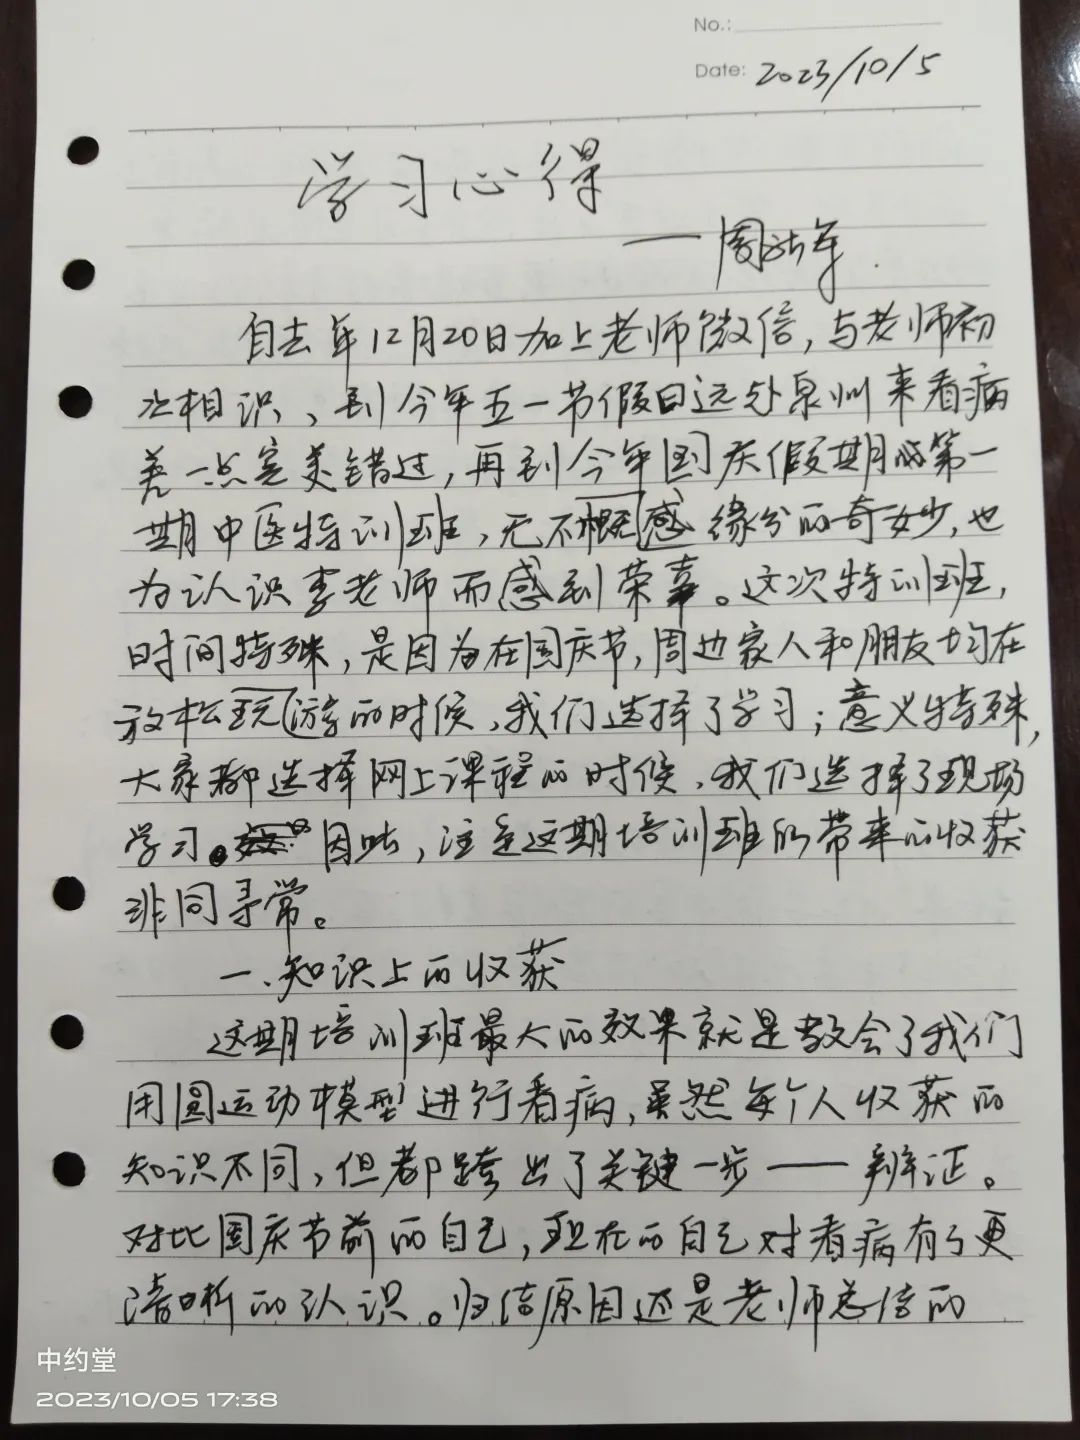 No.:
Date: 2023/10/5
学习心得
——周 年
自去年12月20日加上老师微信，与老师初
次相识、到今年五一节假日远赴泉州来看病
差一点完美错过，再到今年国庆假期的第一
期中医特训班，无不概感缘分的奇妙，也
为认识李老师而感到荣幸。这次特训班，
时间特殊，是因为在国庆节，周边家人和朋友均在
放松玩游的时候、我们选择了学习；意义特殊，
大家都选择网上课程的时候、我们选择了现场
学习。因此，注定这期培训班所带来的收获
非同寻常。
一、知识上的收获
这期培训班最大的效果就是教会了我们
用圆运动模型进行看病，虽然每个人收获的
知识不同，但都跨出了关键一步——辨证。
对比国庆节前的自己，现在的自己对看病有了更
清晰的认识。归结原因还是老师总结的
中约堂
2023/10/05 17:38